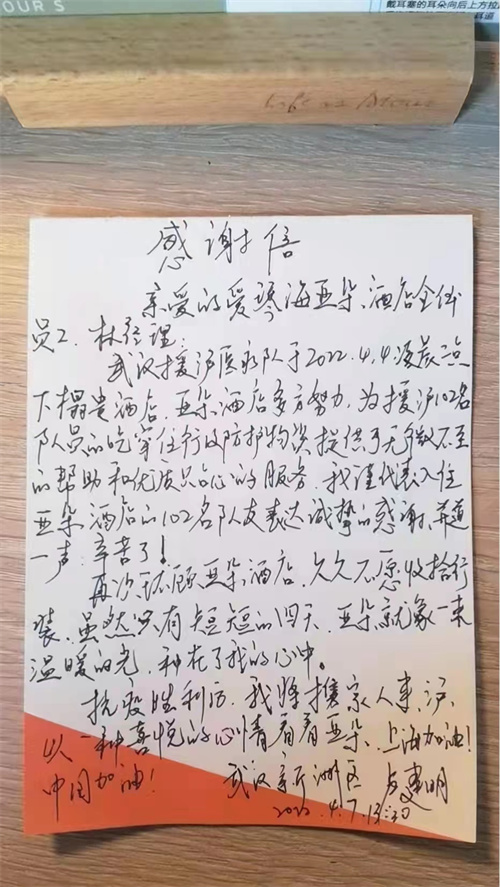 OURS
戴耳塞的耳朵向后上方拉
感谢信
亲爱的爱琴海亚朵酒店全体
员工、林经理:
武汉援沪医疗队于2022.4.4凌晨
下榻贵酒店,亚朵酒店多方努力,为援沪102名
队员的吃穿住行及防护物资提供了无微不至
的帮助和优质贴心的服务。我谨代表入住
亚朵酒店的102名队友表达诚挚的感谢,并道
一声:辛苦了!
再次环顾亚朵酒店,久久不愿收拾行
装,虽然只有短短的四天,亚朵就象一束
温暖的光,种在了我的心中。
抗疫胜利后,我将携家人来沪,
以一种喜悦的心情看看亚朵、上海加油!
中国加油!
武汉新洲区 建明
2022.4.7.13:30